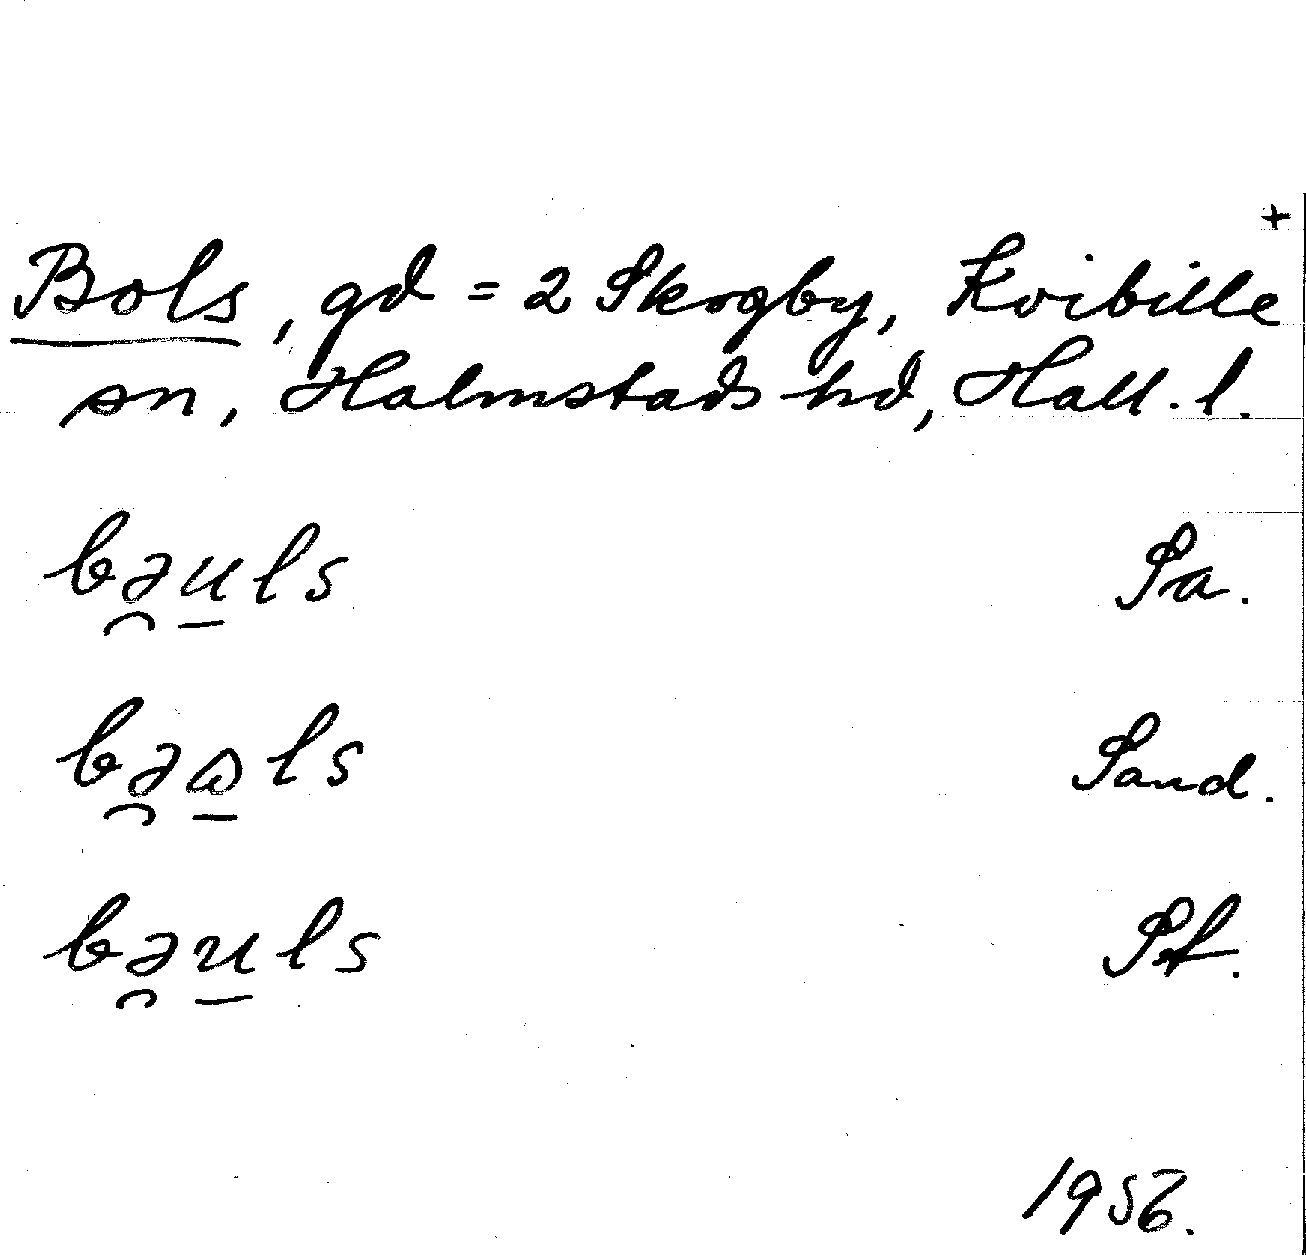 +
Bols, gd = 2 Skogby, Kvibille
sn, Halmstads hd, Hall. l.
bə̯u̲ls Sa.
bə̯ɷ̲ls Sand.
bə̯u̲ls St.
1956.